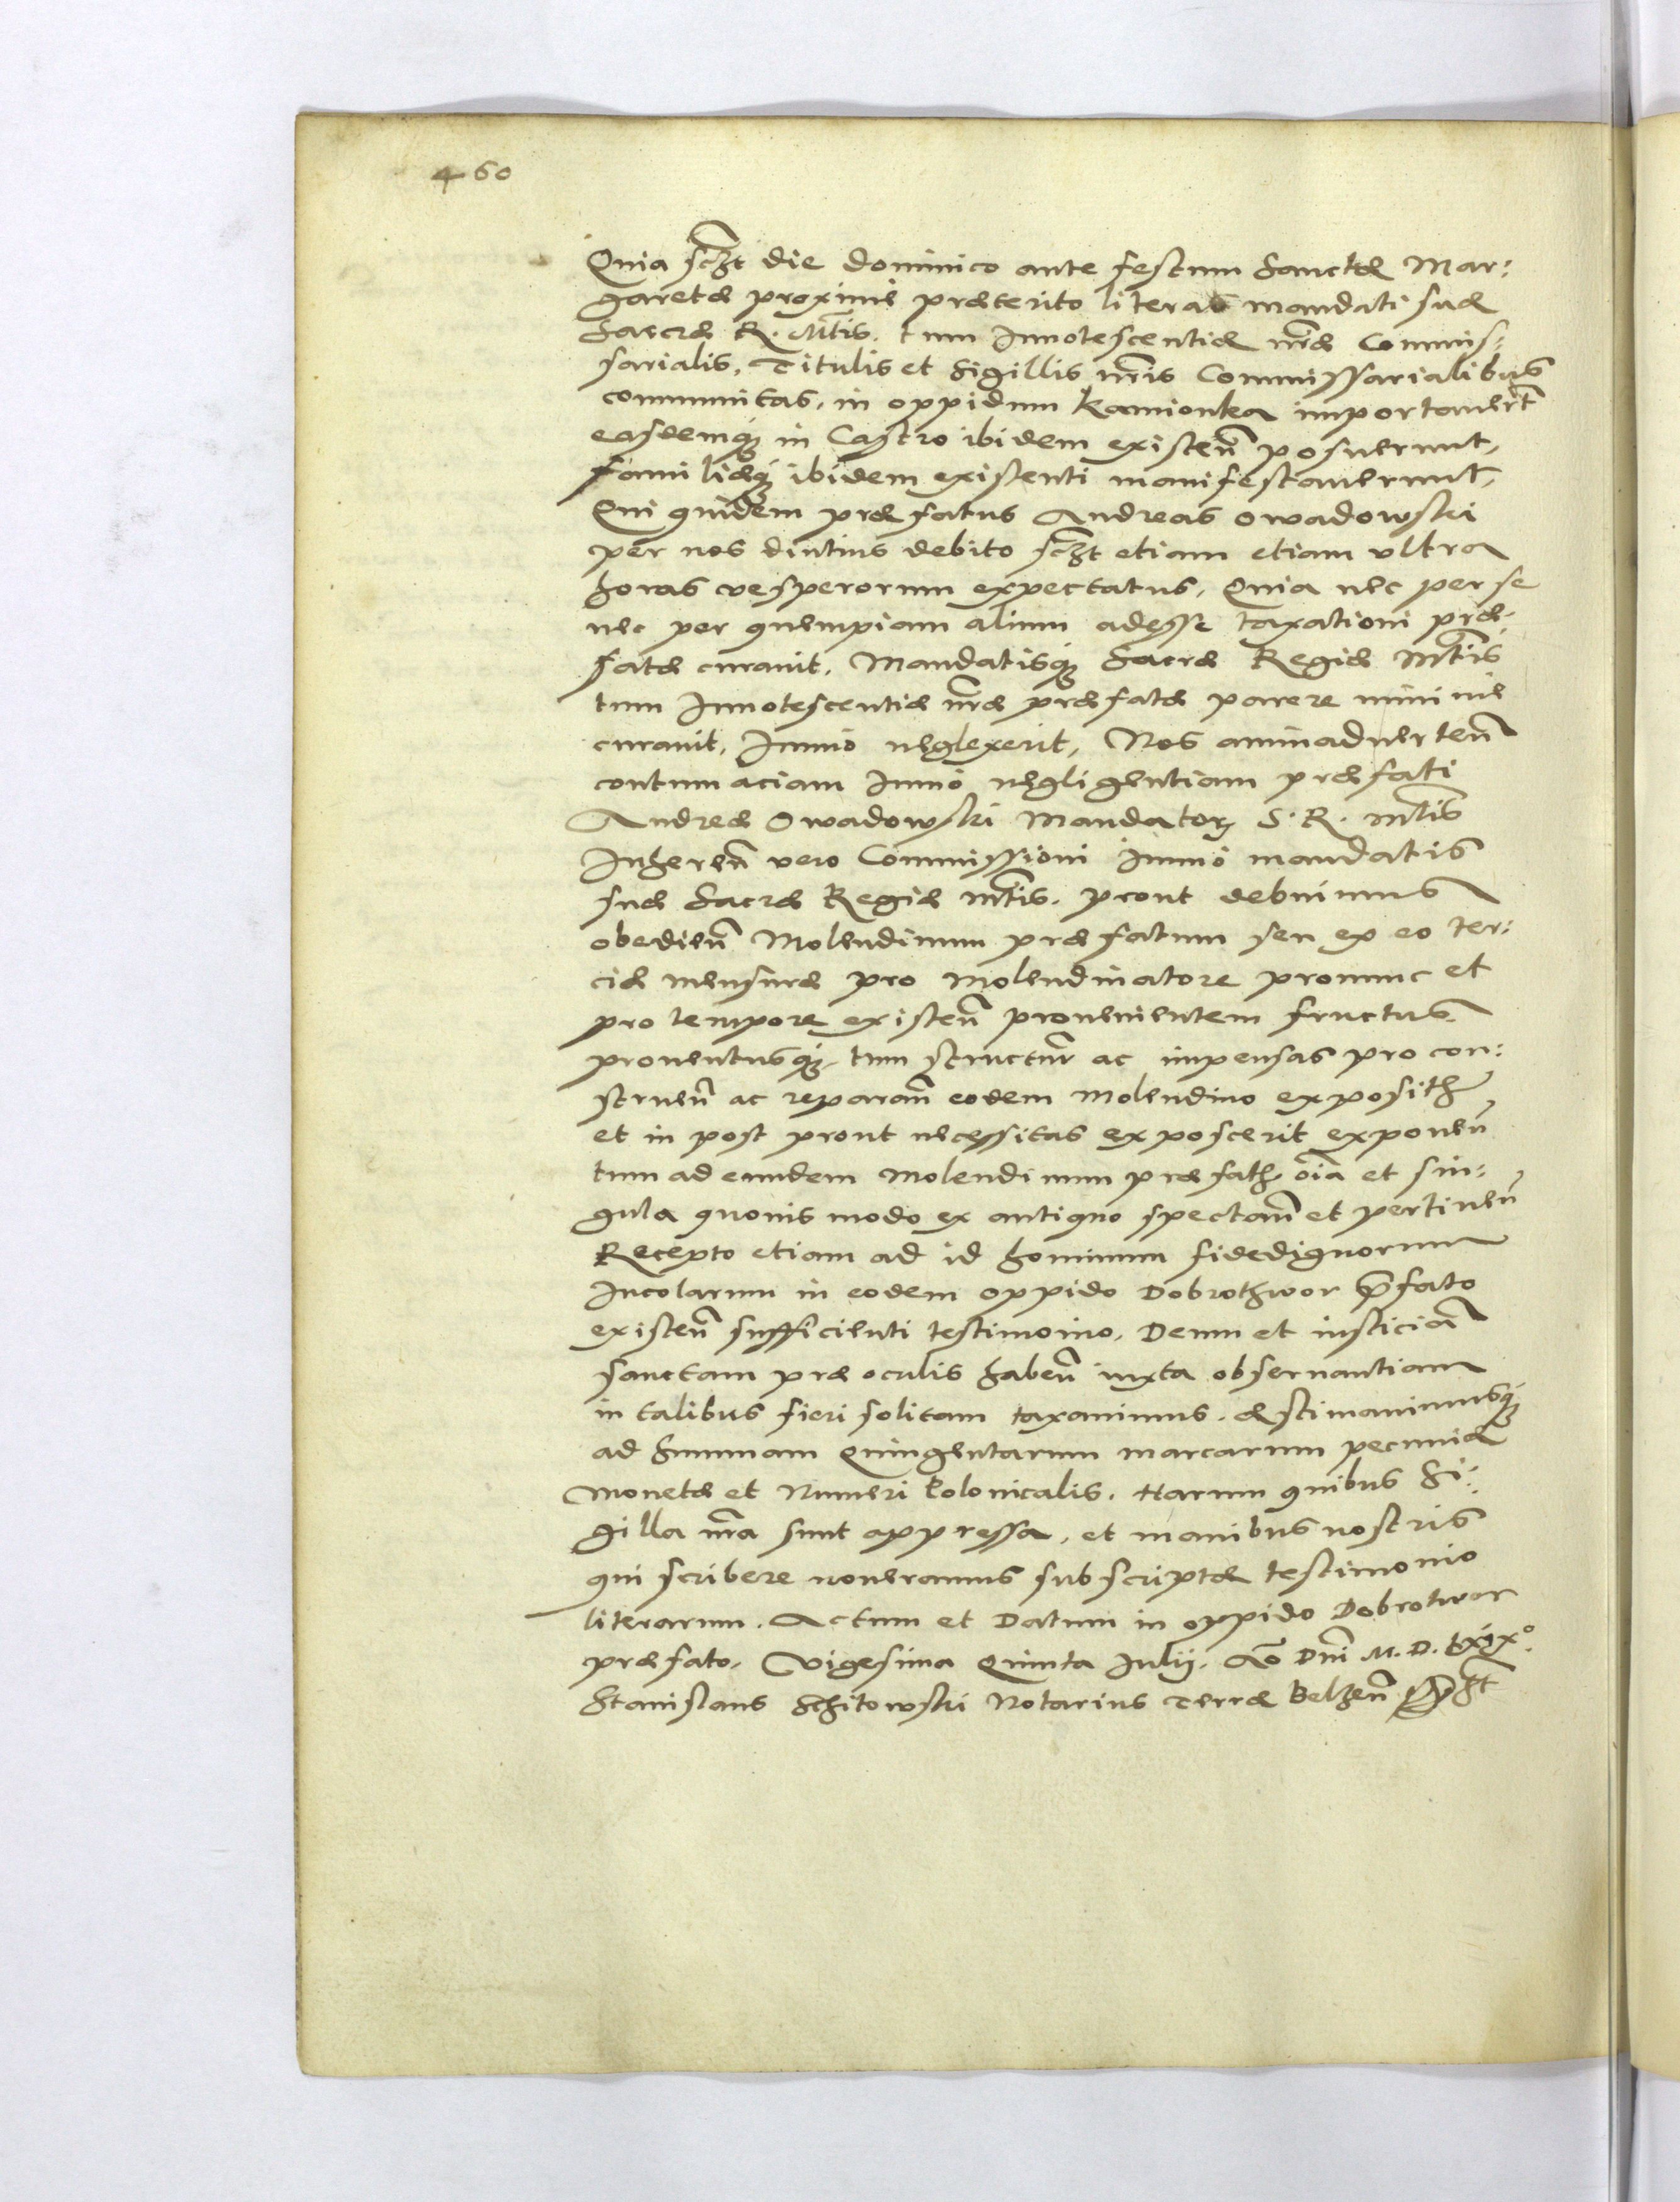 460
Quia sczt die dominico ante festum Sanctæ Mar:
garetæ proxime præterito literas mandati suæ
Sacræ R. Mtis. tum Innotescentiæ nræ Commis:
sarialis, Titulis et Sigillis nris Commissarialibus
communitas, in oppidum Kamionka importauert
easdemq in Castro ibidem existen posuerunt,
familiæq ibidem existenti manifestauerunt,
Qui quidem præfatus Andreas Owadowski
per nos diutius debito sczt etiam etiam vltra
horas vesperorum expectatus, Quia nec per se
nec per quempiam alium adesse taxationi præ-
fatæ curauit, Mandatisq Sacræ Regiæ Mtis
tum Innotescentiæ nræ præfatæ parere minime
curauit, Immo neglexerit, Nos animaduerten
contumaciam Immo negligentiam præfati
Andreæ Owadowski Mandator S. R. Mtis
Inheren vero Commissioni Immo mandatis
suæ Sacræ Regiæ Mtis. prout debuimus
obedien Molendinum præfatum seu ex eo ter:
ciæ mensuræ pro Molendinatore pronunc et
pro tempore existen prouenientem fructus
prouentusq, tum structur ac impensas pro con:
struen ac reparan eodem Molendino exposith
et in post prout necessitas exposcerit exponen
tum ad eundem Molendinum præfath oia et sin:
gula quouis modo ex antiquo spectan et pertinen
Recepto etiam ad id hominum fidedignorum
Incolarum in eodem oppido Dobrothwor pfato
existen sufficienti testimonio, Deum et iusticia
sanctam præ oculis haben iuxta obseruantiam
in talibus fieri solitam taxauimus. æstimauimusq
ad Summam Quingentarum marcarum pecuniæ
Monetæ et Numeri Polonicalis. Harum quibus Si:
gilla nra sunt appressa, et manibus nostris
qui scribere noueramus subscriptæ testimonio
literarum. Actum et Datum in oppido Dobrotwor
præfato. Vigesima Quinta Iulij. Ao Dni M. D. Lxix°.
Stanislaus Schitowski Notarius Terræ Belzen